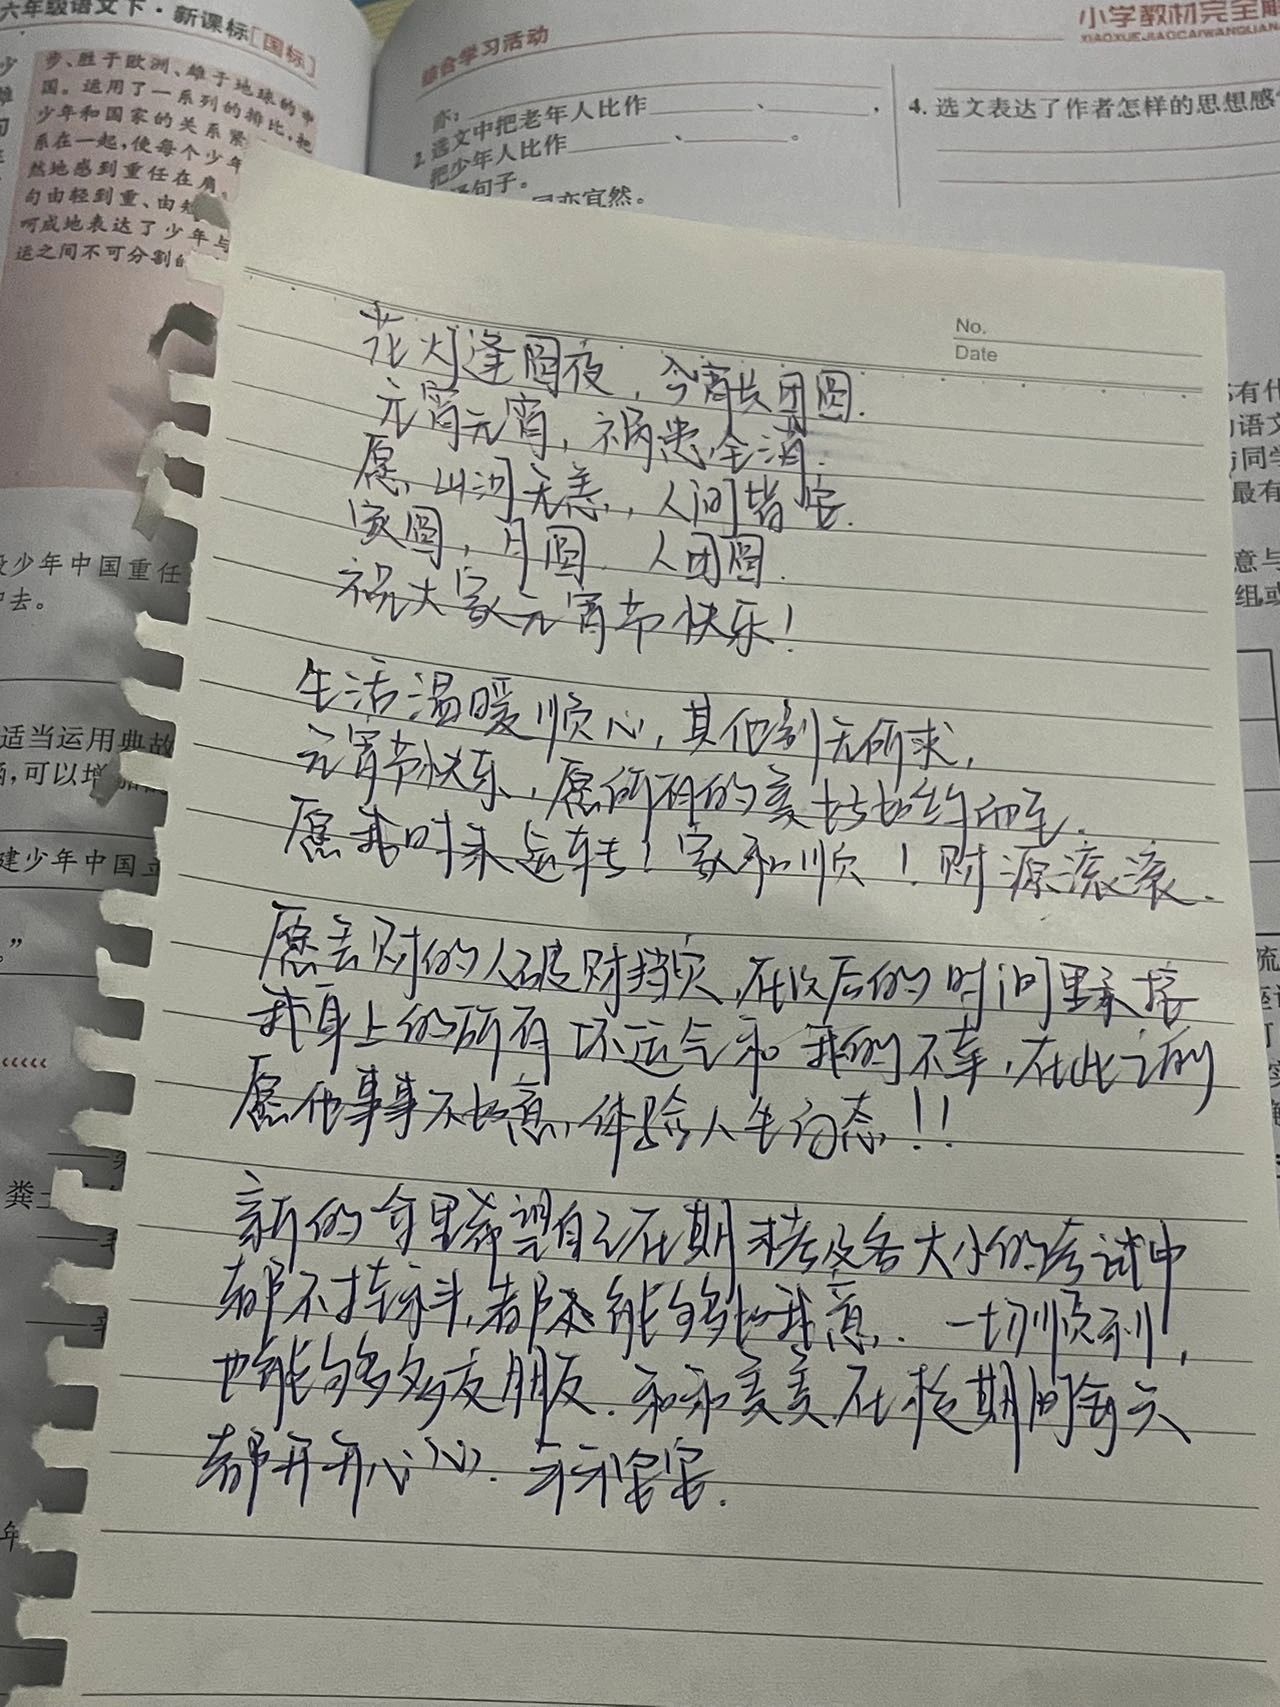 六年级语文下·新课标[国标]
步、胜于欧洲、雄于地球的中
国。运用了一系列的排比,把
少年和国家的关系紧
系在一起,使每个少年
然地感到重任在肩。
句由轻到重、由短
呵成地表达了少年与
运之间不可分割的
少年中国重任
去。
适当运用典故
,可以增
建少年中国
粪土
小学教材完全解
XIAOXUEJIAOCAIWANQUAN
综合学习活动
亦:
2. 选文中把老年人比作、,
把少年人比作、。
句子。
亦宜然。
4. 选文表达了作者怎样的思想感
No.
Date
花灯逢圆夜,今宵共团圆.
元宵元宵,祸患全消.
愿山河无恙,人间皆安.
家圆,月圆.人团圆.
祝大家元宵节快乐!
生活温暖顺心,其他别无所求,
元宵节快乐,愿所有的美好如约而至.
愿我时来运转!家和顺!财源滚滚.
愿丢财的人破财挡灾,在以后的时间里承接
我身上的所有坏运气和我的不幸,在此之前
愿他事事不如意,体验人生百态!!
新的年里希望自己在期末考及各大小的考试中
都不挂科,都能够如我意.一切顺利,
也能够多多交朋友.和和美美在校期间每天
都开开心心.平平安安.
有什
语文
与同学
最有
意与
组或